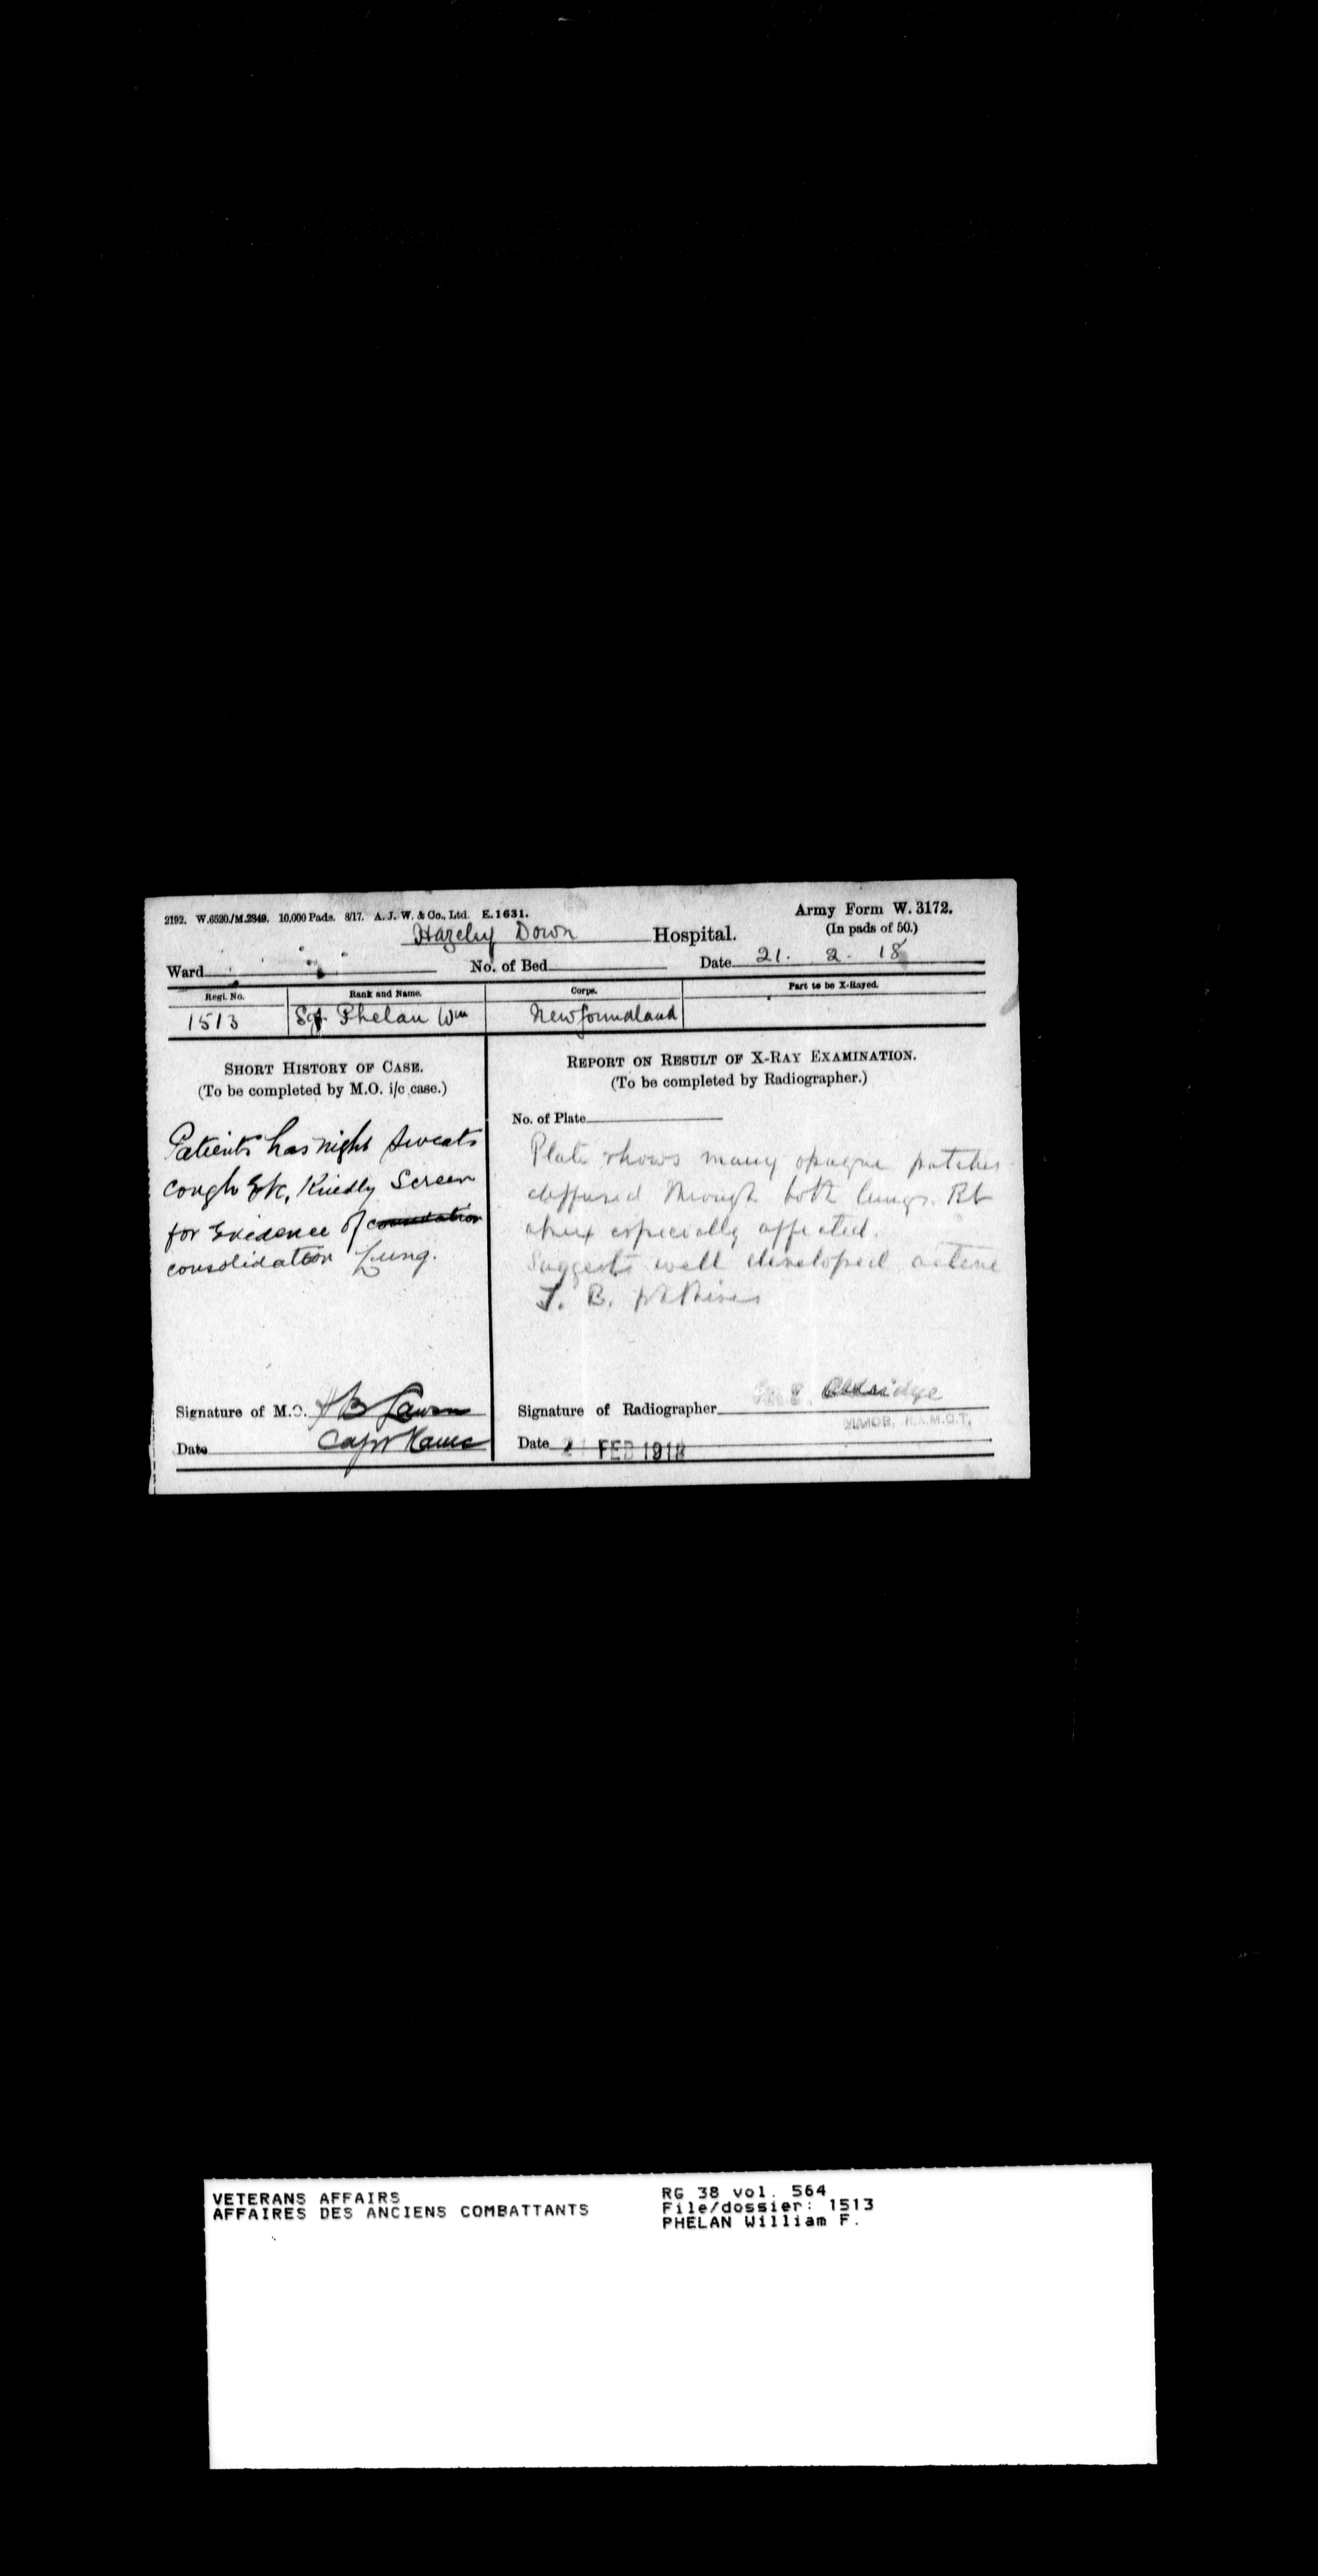 2192. W.6520/M.2349. 10,000 Pads. 8/17. A. J. W. & Co., Ltd. E.1631.
Army Form W. 3172.
(In pads of 50.)
Hazeley Down Hospital.
Ward No. of Bed Date 21. 2. 18
Regl. No. Rank and Name. Corps. Part to be X-Rayed.
1513 Sgt Phelan Wm Newfoundland
SHORT HISTORY OF CASE.
(To be completed by M.O. i/c case.)
Patient has night sweats
cough Etc, Kindly Screen
for Evidence of
consolidation Lung.
Signature of M.O.
Date Capt
REPORT ON RESULT OF X-RAY EXAMINATION.
(To be completed by Radiographer.)
No. of Plate
Plate shows many opaque patches
diffused through both lungs. Rt
apex especially affected.
Suggests well developed active
T. B. phthisis
Signature of Radiographer Aldridge
MAJOR,
Date 21 FEB 1918
VETERANS AFFAIRS
AFFAIRES DES ANCIENS COMBATTANTS
RG 38 vol. 564
File/dossier: 1513
PHELAN William F.